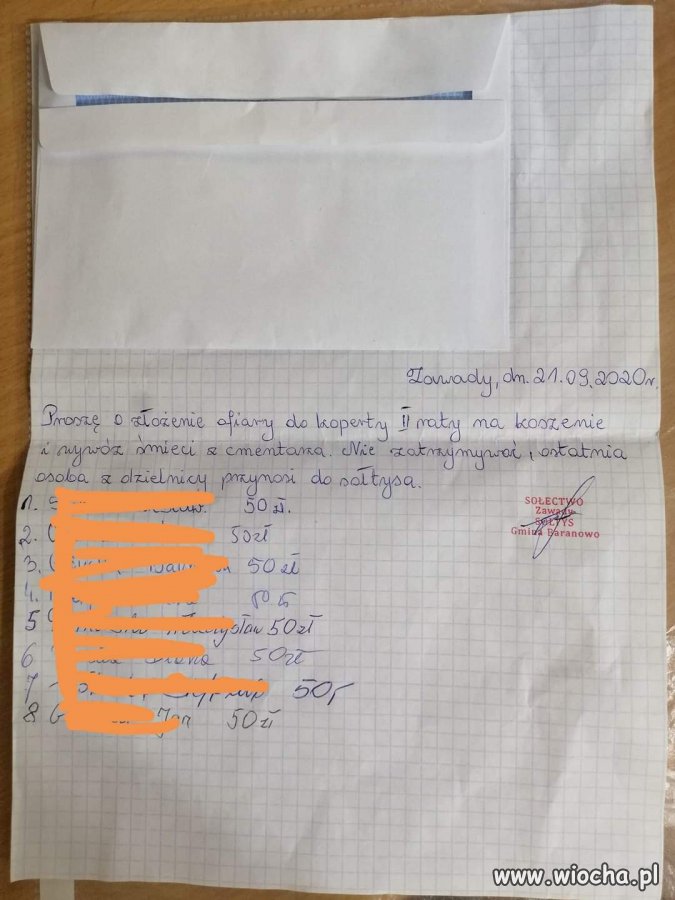 Zawady, dn. 21.09.2020r.
Proszę o złożenie ofiary do koperty II raty na koszenie
i wywóz śmieci z cmentarza. Nie zatrzymywać, ostatnia
osoba z dzielnicy przynosi do sołtysa.
SOŁECTWO
Zawady
SOŁTYS
Gmina Baranowo
1. 50 zł.
2. 50zł
3. 50 zł
4.
5 50zł
6 50zł
7 50
8 Jan 50zł
www.wiocha.pl